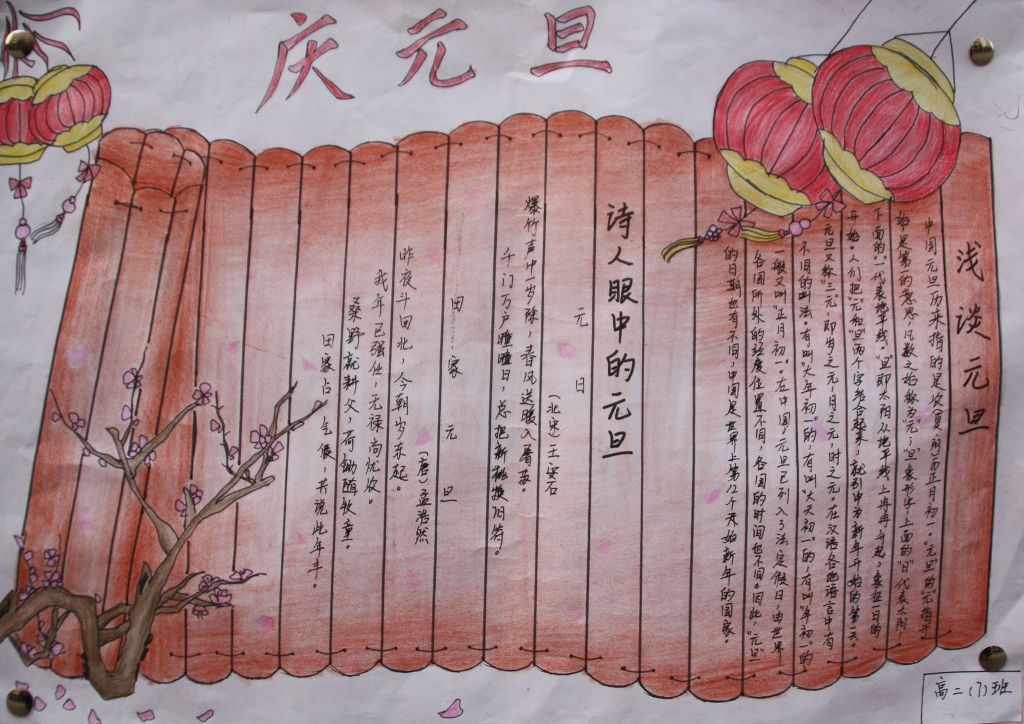 庆元旦
浅谈元旦
中国元旦历来指的是农(夏历)历正月初一。"元旦"的"元"指开
始是第一的意思,凡数之始称为"元";"旦"象形字,上面的"日"代表太阳,
下面的"一"代表地平线。"旦"即太阳从地平线上冉冉升起,象征一日的
开始。人们把"元"和"旦"两个字结合起来,就引申为新年开始的第一天。
元旦又称"三元",即岁之元,月之元,时之元。在汉语各地语言中有
不同的叫法,有叫"大年初一"的,有叫"大天初一"的,有叫"年初一"的
一般又叫"正月初一"。在中国,元旦已列入了法定假日,由世界
各国所处的经度位置不同,各国的时间也不同。因此,"元旦"
的日期也有不同,中国是世界上第12个开始新年的国家。
诗人眼中的元旦
元日
(北宋)王安石
爆竹声中一岁除,春风送暖入屠苏。
千门万户曈曈日,总把新桃换旧符。
田家元旦
(唐)孟浩然
昨夜斗回北,今朝岁东起。
我年已强仕,无禄尚忧农。
桑野就耕父,荷锄随牧童。
田家占气候,共说此年丰。
高二(7)班